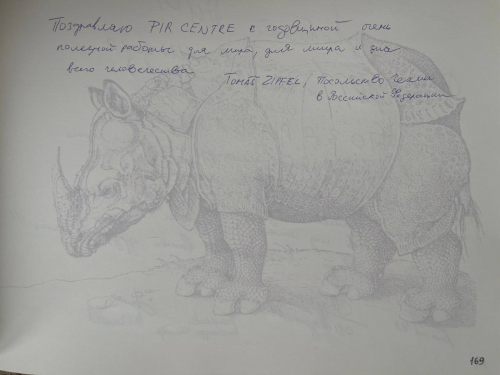 Поздравляю PIR CENTRE с годовщиной очень
полезной работы для мира, для мира и для
всего человечества
Томаš ZIPFEL, Посольство Чехии
в Российской Федерации
169